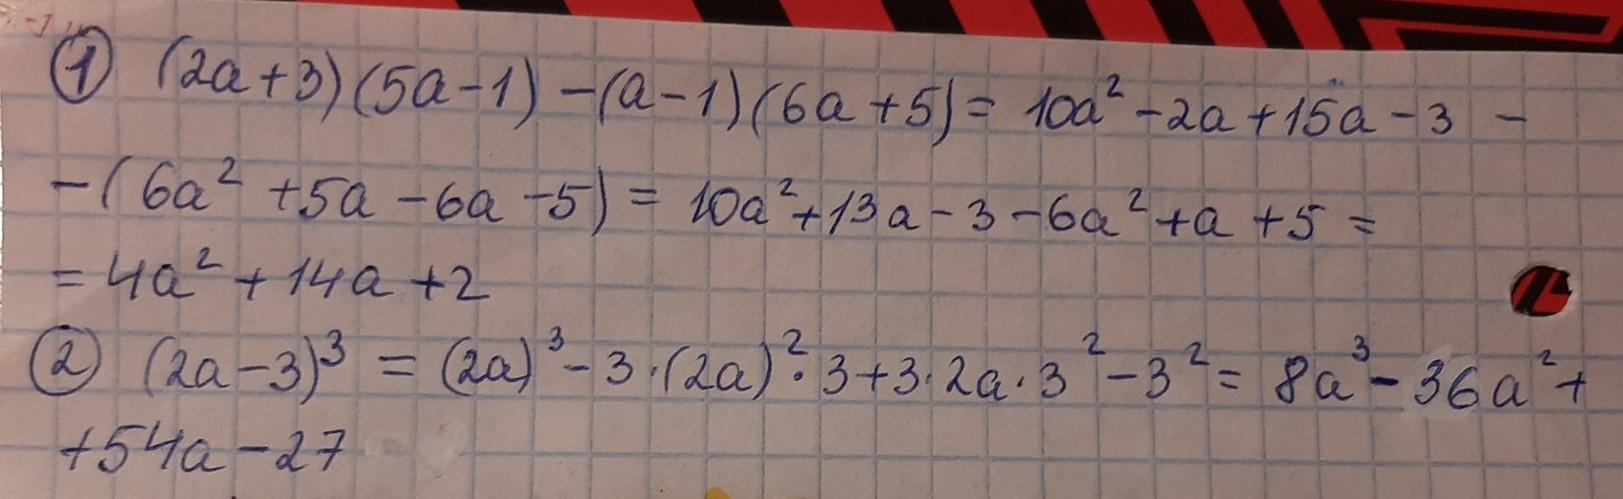 ① (2a+3)(5a-1)-(a-1)(6a+5)= 10a²-2a+15a-3 -
-(6a²+5a-6a-5)= 10a²+13a-3-6a²+a+5=
=4a²+14a+2
② (2a-3)³ = (2a)³-3·(2a)²·3+3·2a·3²-3²= 8a³-36a²+
+54a-27